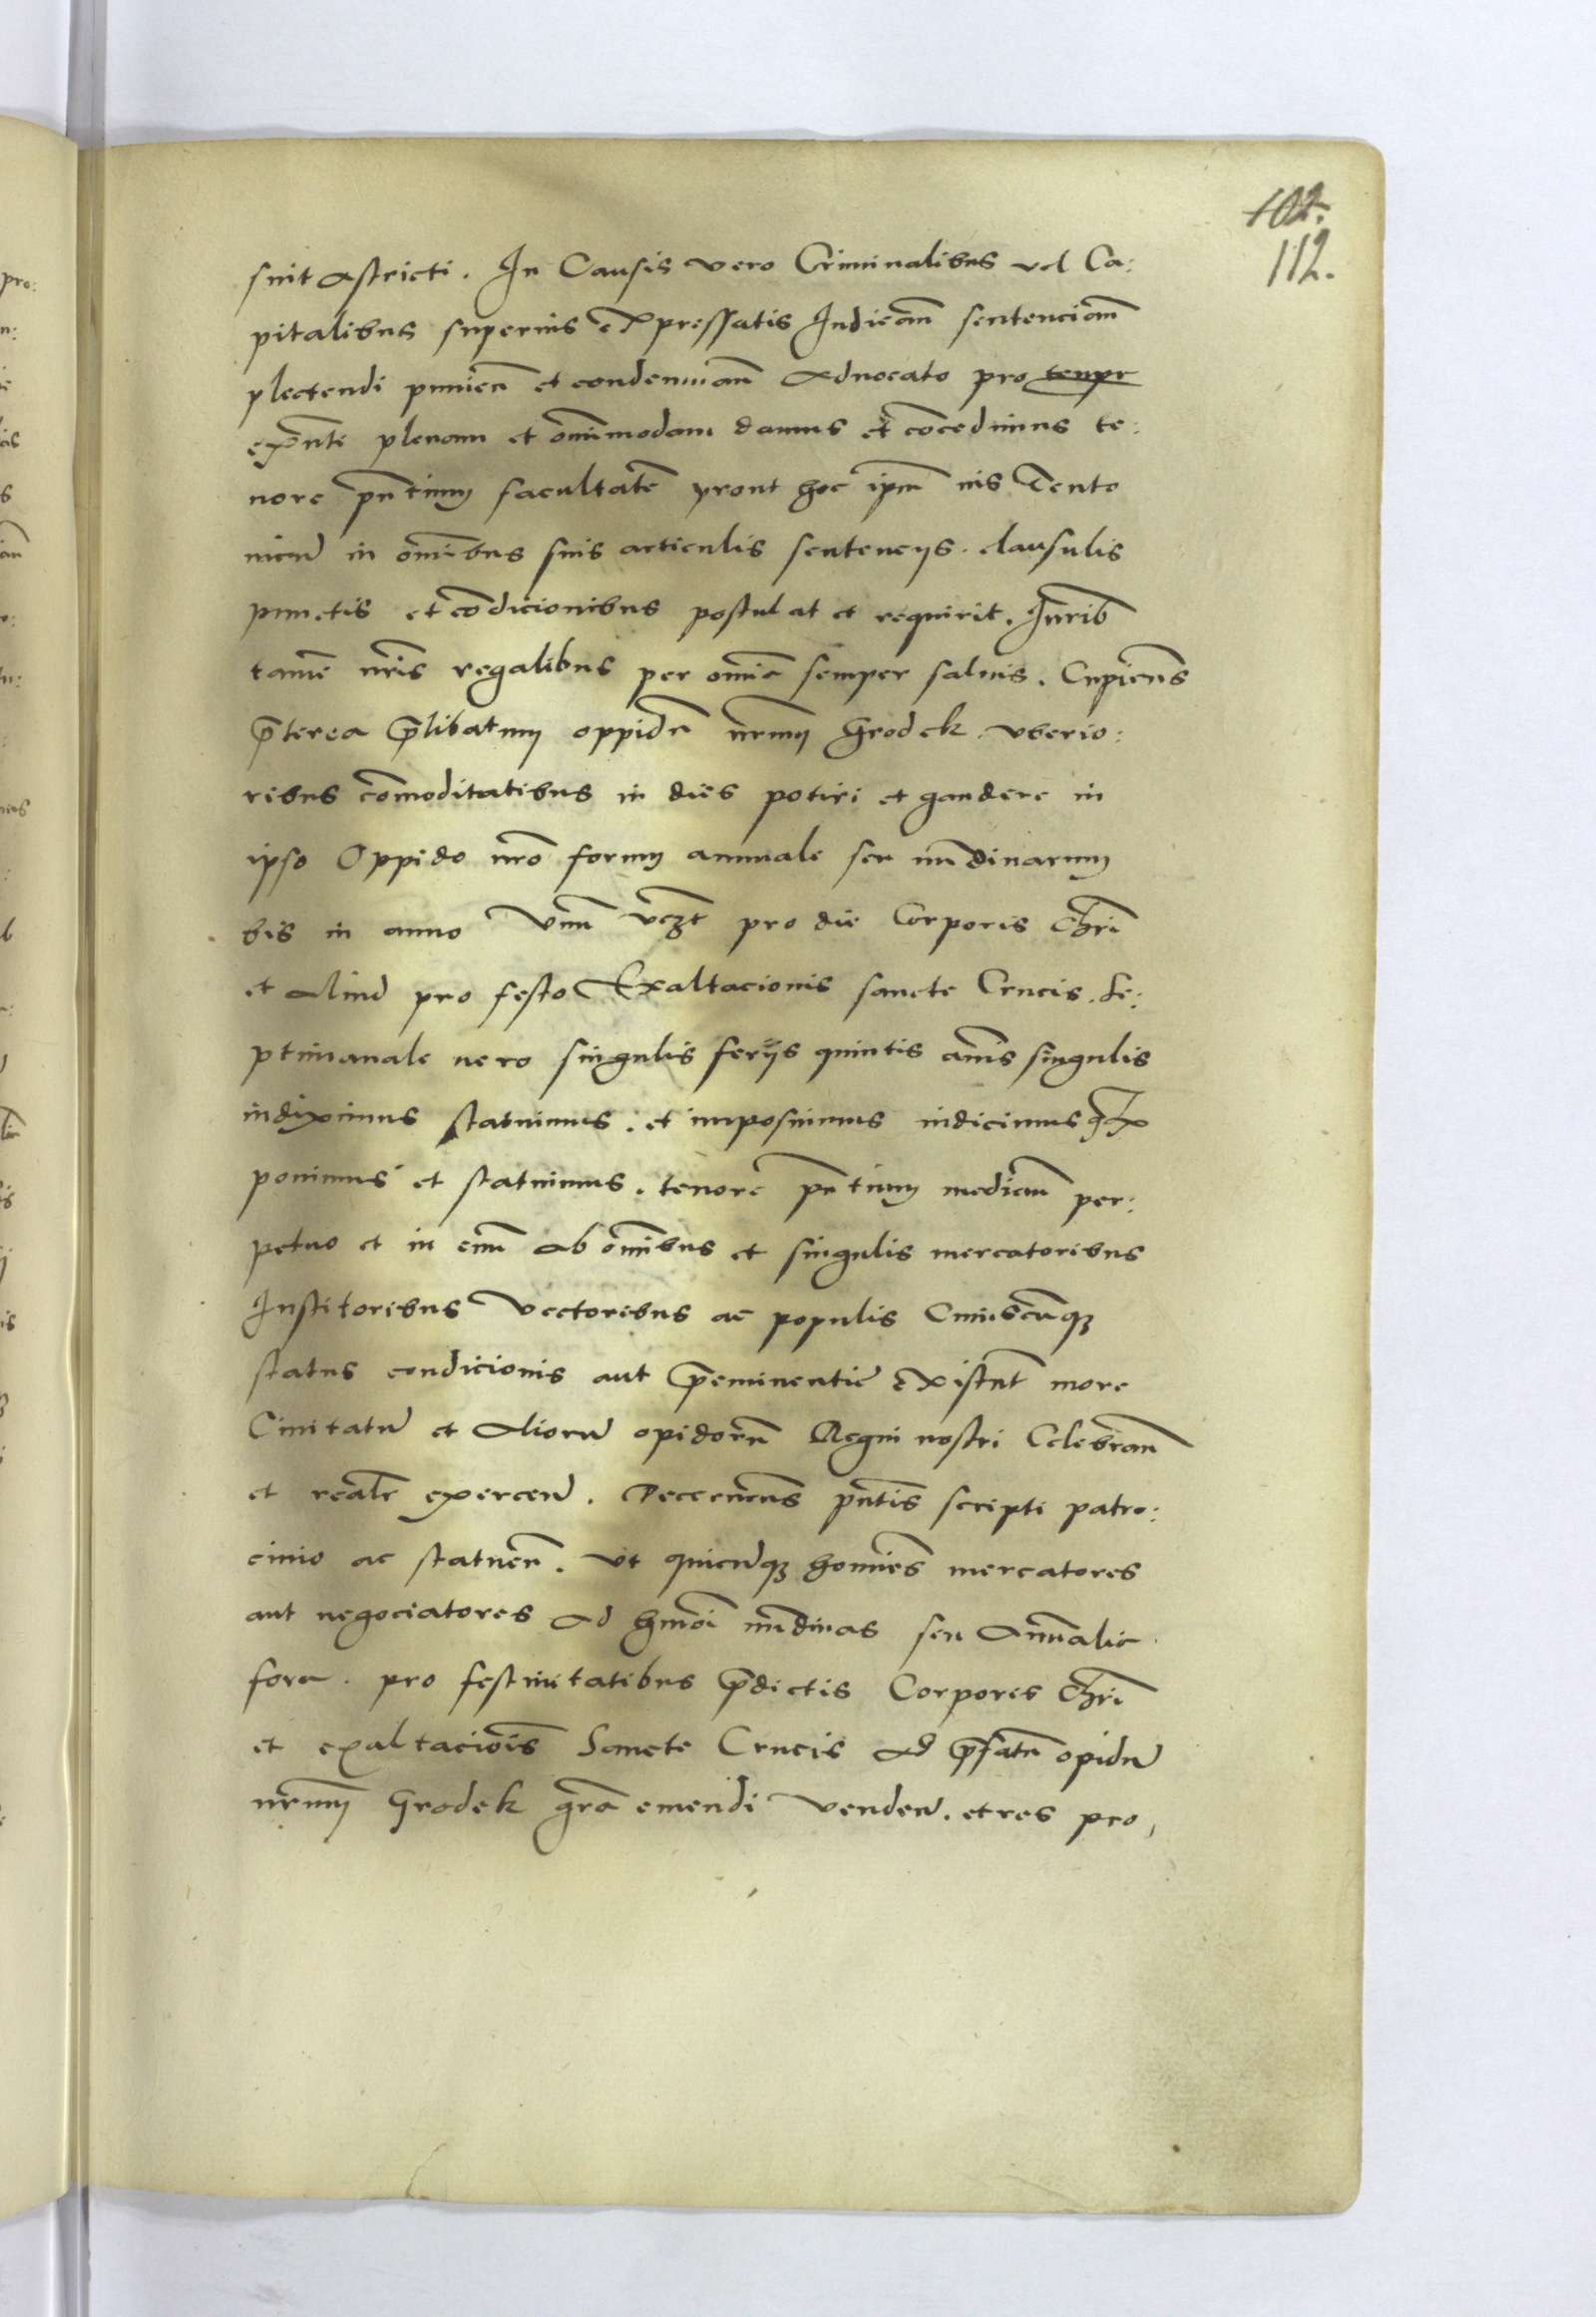 102.
112.
sint astricti. In Causis vero Criminalibus vel Ca:
pitalibus superius expressatis Iudicañ sentenciam̃
plectendi punieñ et condemnañ Aduocato pro tenpr
exñte plenam et omĩmodam damus et cõcedimus te:
nore pñtium facultatẽ prout hoc ipm̃ ius Teuto
nicũ in omĩbus suis articulis sentencijs. clausulis
punctis et cõdicionibus postulat et requirit. Iurib̃
tamẽ nrĩs regalibus per omĩa semper saluis. Cupieñs
p̃terea p̃libatum oppidũ nr̃um Grodek vberio:
ribus cõmoditatibus in dies potiri et gaudere in
ipso Oppido nrõ forum annuale seu nũdinarum
bis in anno Vnũ vcz̃t pro die Corporis Chrĩ
et aliud pro festo Exaltacionis sancte Crucis. Se:
ptimanale vero singulis ferijs quintis annĩs singulis
indiximus statuimus. et imposuimus indicimus
ponimus et statuimus. tenore pñtium mediañ per:
petuo et in euũ ab omĩbus et singulis mercatoribus
Institoribus Vectoribus ac populis Cuiuscũqz
status condicionis aut p̃eminentie existñt more
Ciuitatũ et aliorũ opidorũ Regni nostri Celebrañ
et realr̃ exercen̄. Decerneñs pñtis scripti patro:
cinio ac statueñ. Vt quicũqz homies̃ mercatores
aut negociatores ad hm̃oi nũdinas seu Annualia
fora. pro festiuitatibus p̃dictis Corporis Chrĩ
et exaltaciois̃ Sancte Crucis ad p̃fatũ opidũ
nr̃um Grodek grã emendi venden̄. et res pro,